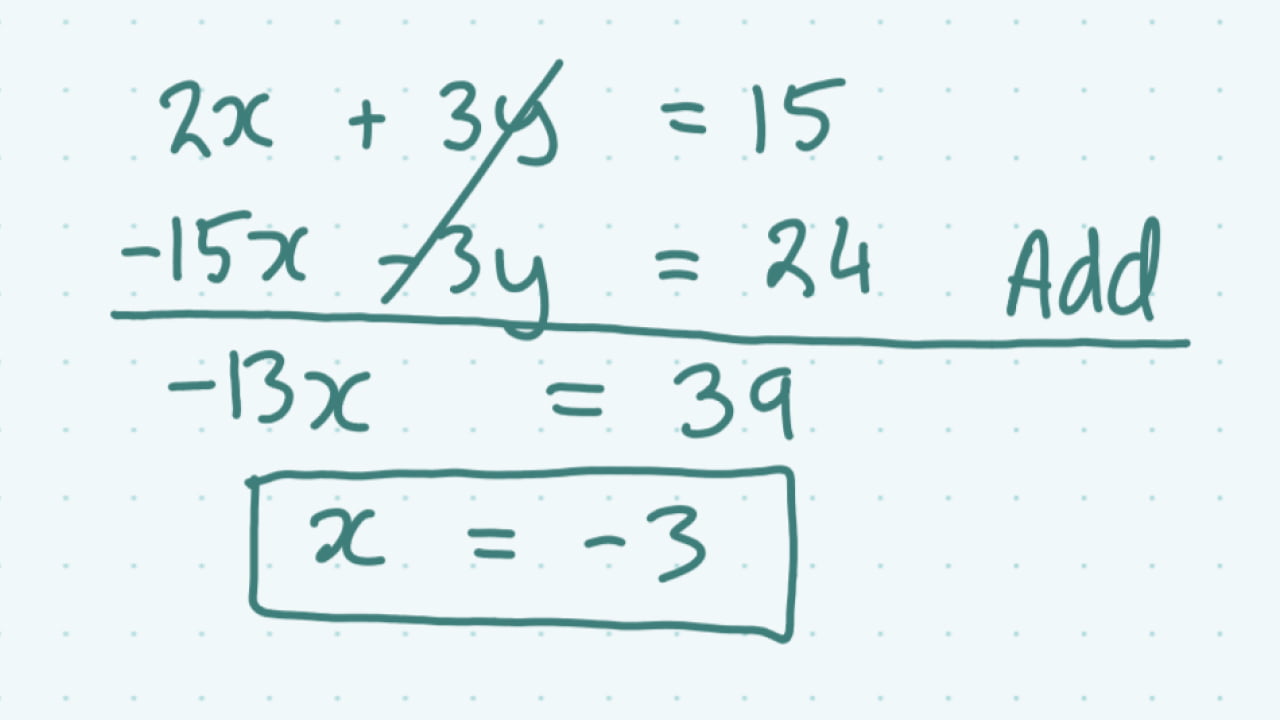 2x + 3y = 15
-15x -3y = 24 Add
-13x = 39
x = -3